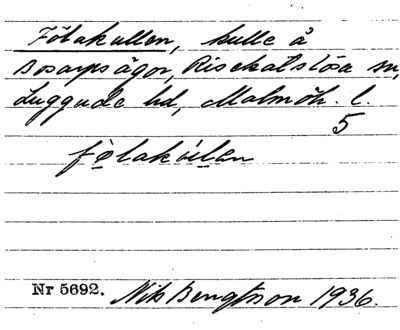 Fölakullen, kulle å
Bosarps ägor, Risekatslösa sn,
Luggude hd, Malmöh. l.
5
fø̀lakúlen
Nr 5692. Nils Bengtsson 1936.